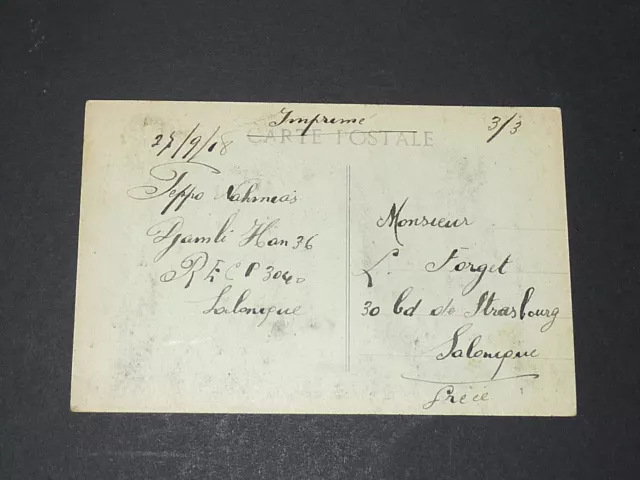 Imprimé
3/3
CARTE POSTALE
27/9/18
Peppo Nahmias
Djambli Han 36
Salonique
Monsieur
L. Forget
30 bd de Strasbourg
Salonique
Grèce